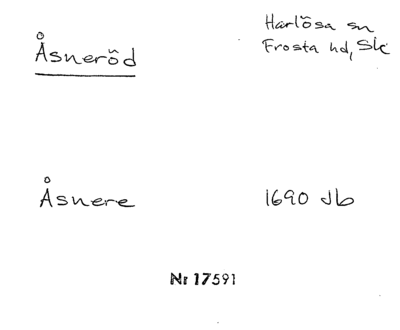 Åsneröd
Harlösa sn
Frosta hd, Sk
Åsnere 1690 Jb
Nr 17591